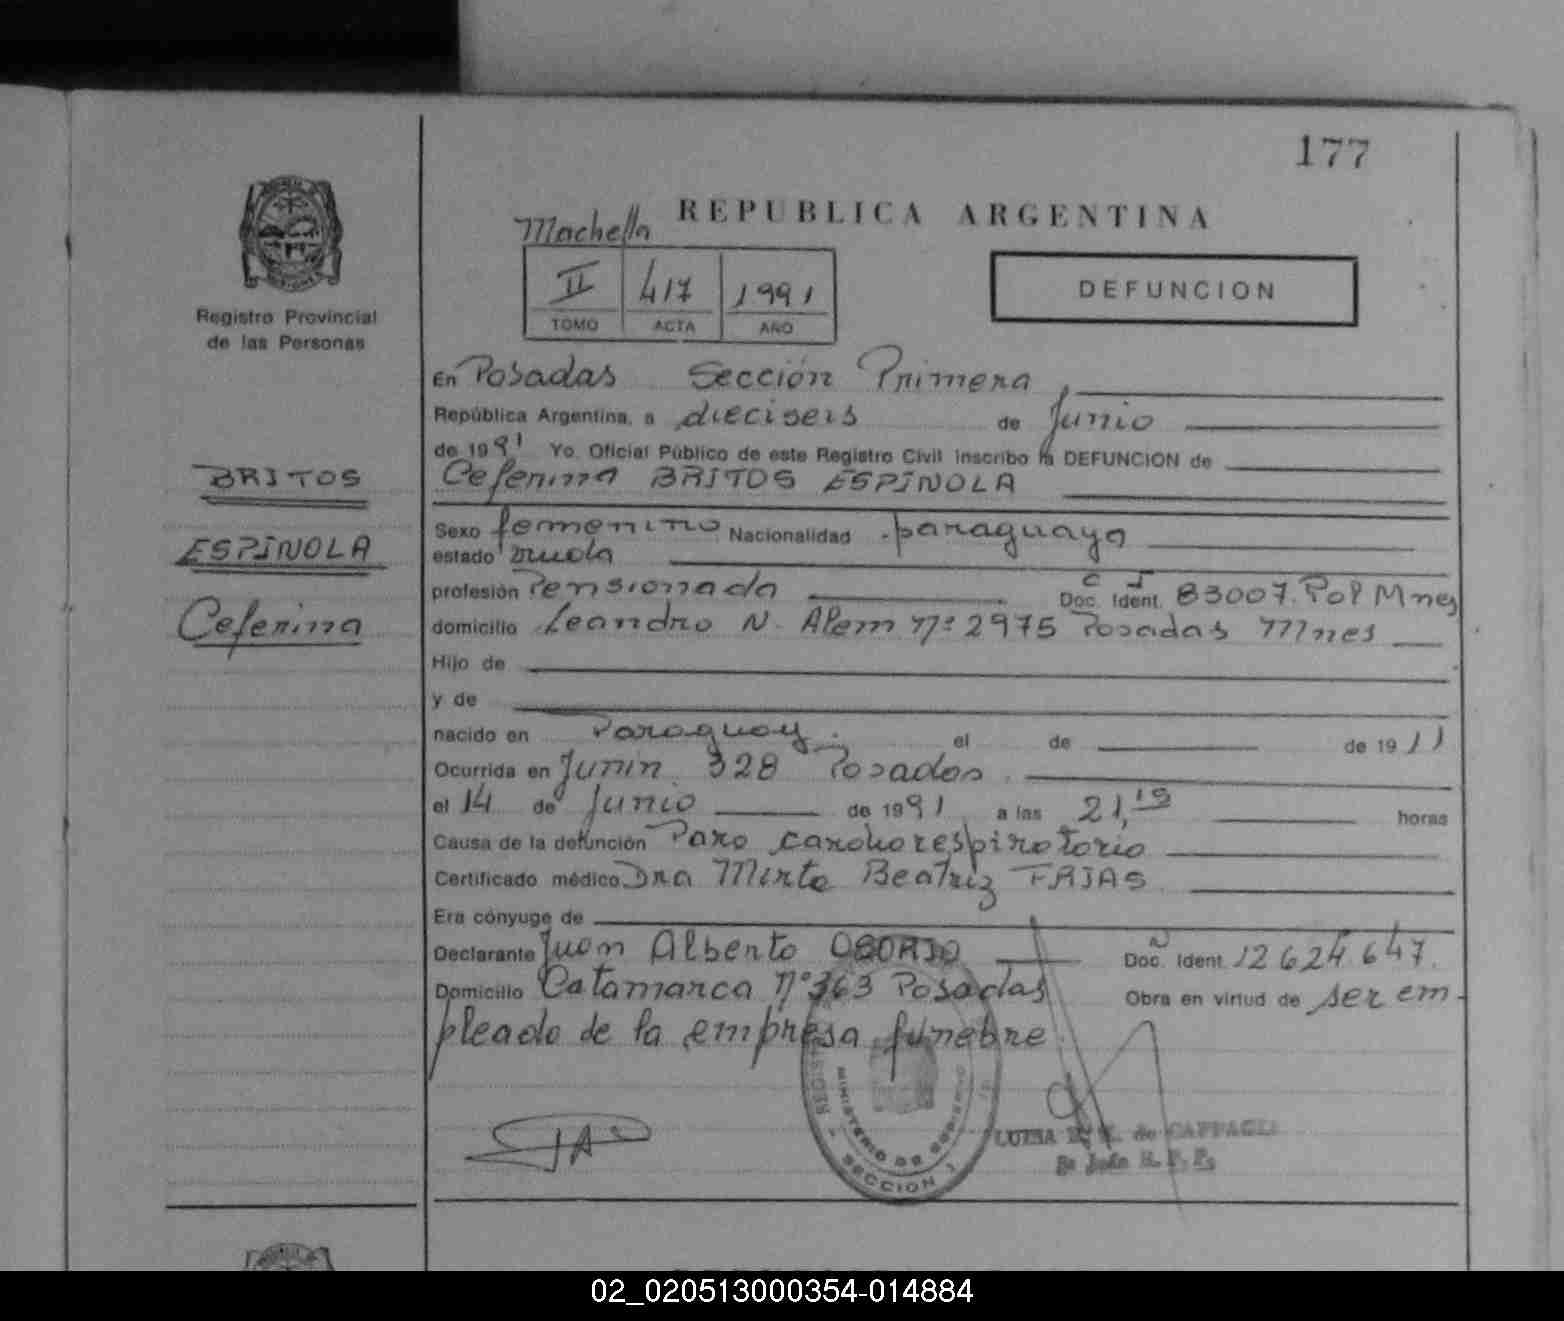 177
REPUBLICA ARGENTINA
Machella
II 417 1991
TOMO ACTA AÑO
DEFUNCION
Registro Provincial
de las Personas
BRITOS
ESPÍNOLA
Ceferina
En Posadas Sección Primera
República Argentina, a dieciseis de Junio
de 1991 Yo, Oficial Público de este Registro Civil inscribo la DEFUNCION de
Ceferina BRITOS ESPÍNOLA
Sexo femenino Nacionalidad paraguaya
estado viuda
profesión Pensionada Doc. Ident. C I 83007. Pol Mnes
domicilio Leandro N. Alem nº 2975 Posadas Mnes
Hijo de
y de
nacido en Paraguay el de de 1911
Ocurrida en Junin 328 Posadas.
el 14 de Junio de 1991 a las 21,15 horas
Causa de la defunción Paro cardiorespiratorio
Certificado médico Dra Mirta Beatriz FRIAS
Era cónyuge de
Declarante Juan Alberto OSORIO Doc. Ident. 12.624.647.
Domicilio Catamarca nº 363 Posadas Obra en virtud de ser em-
pleado de la empresa funebre
MINISTERIO DE GOBIERNO
SECCION 1
LUISA de
R. P. P.
02_020513000354-014884